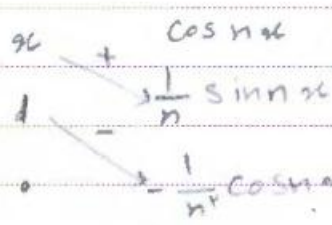 x + cos nx
1 - 1/n sin nx
0 - 1/n² cos nx